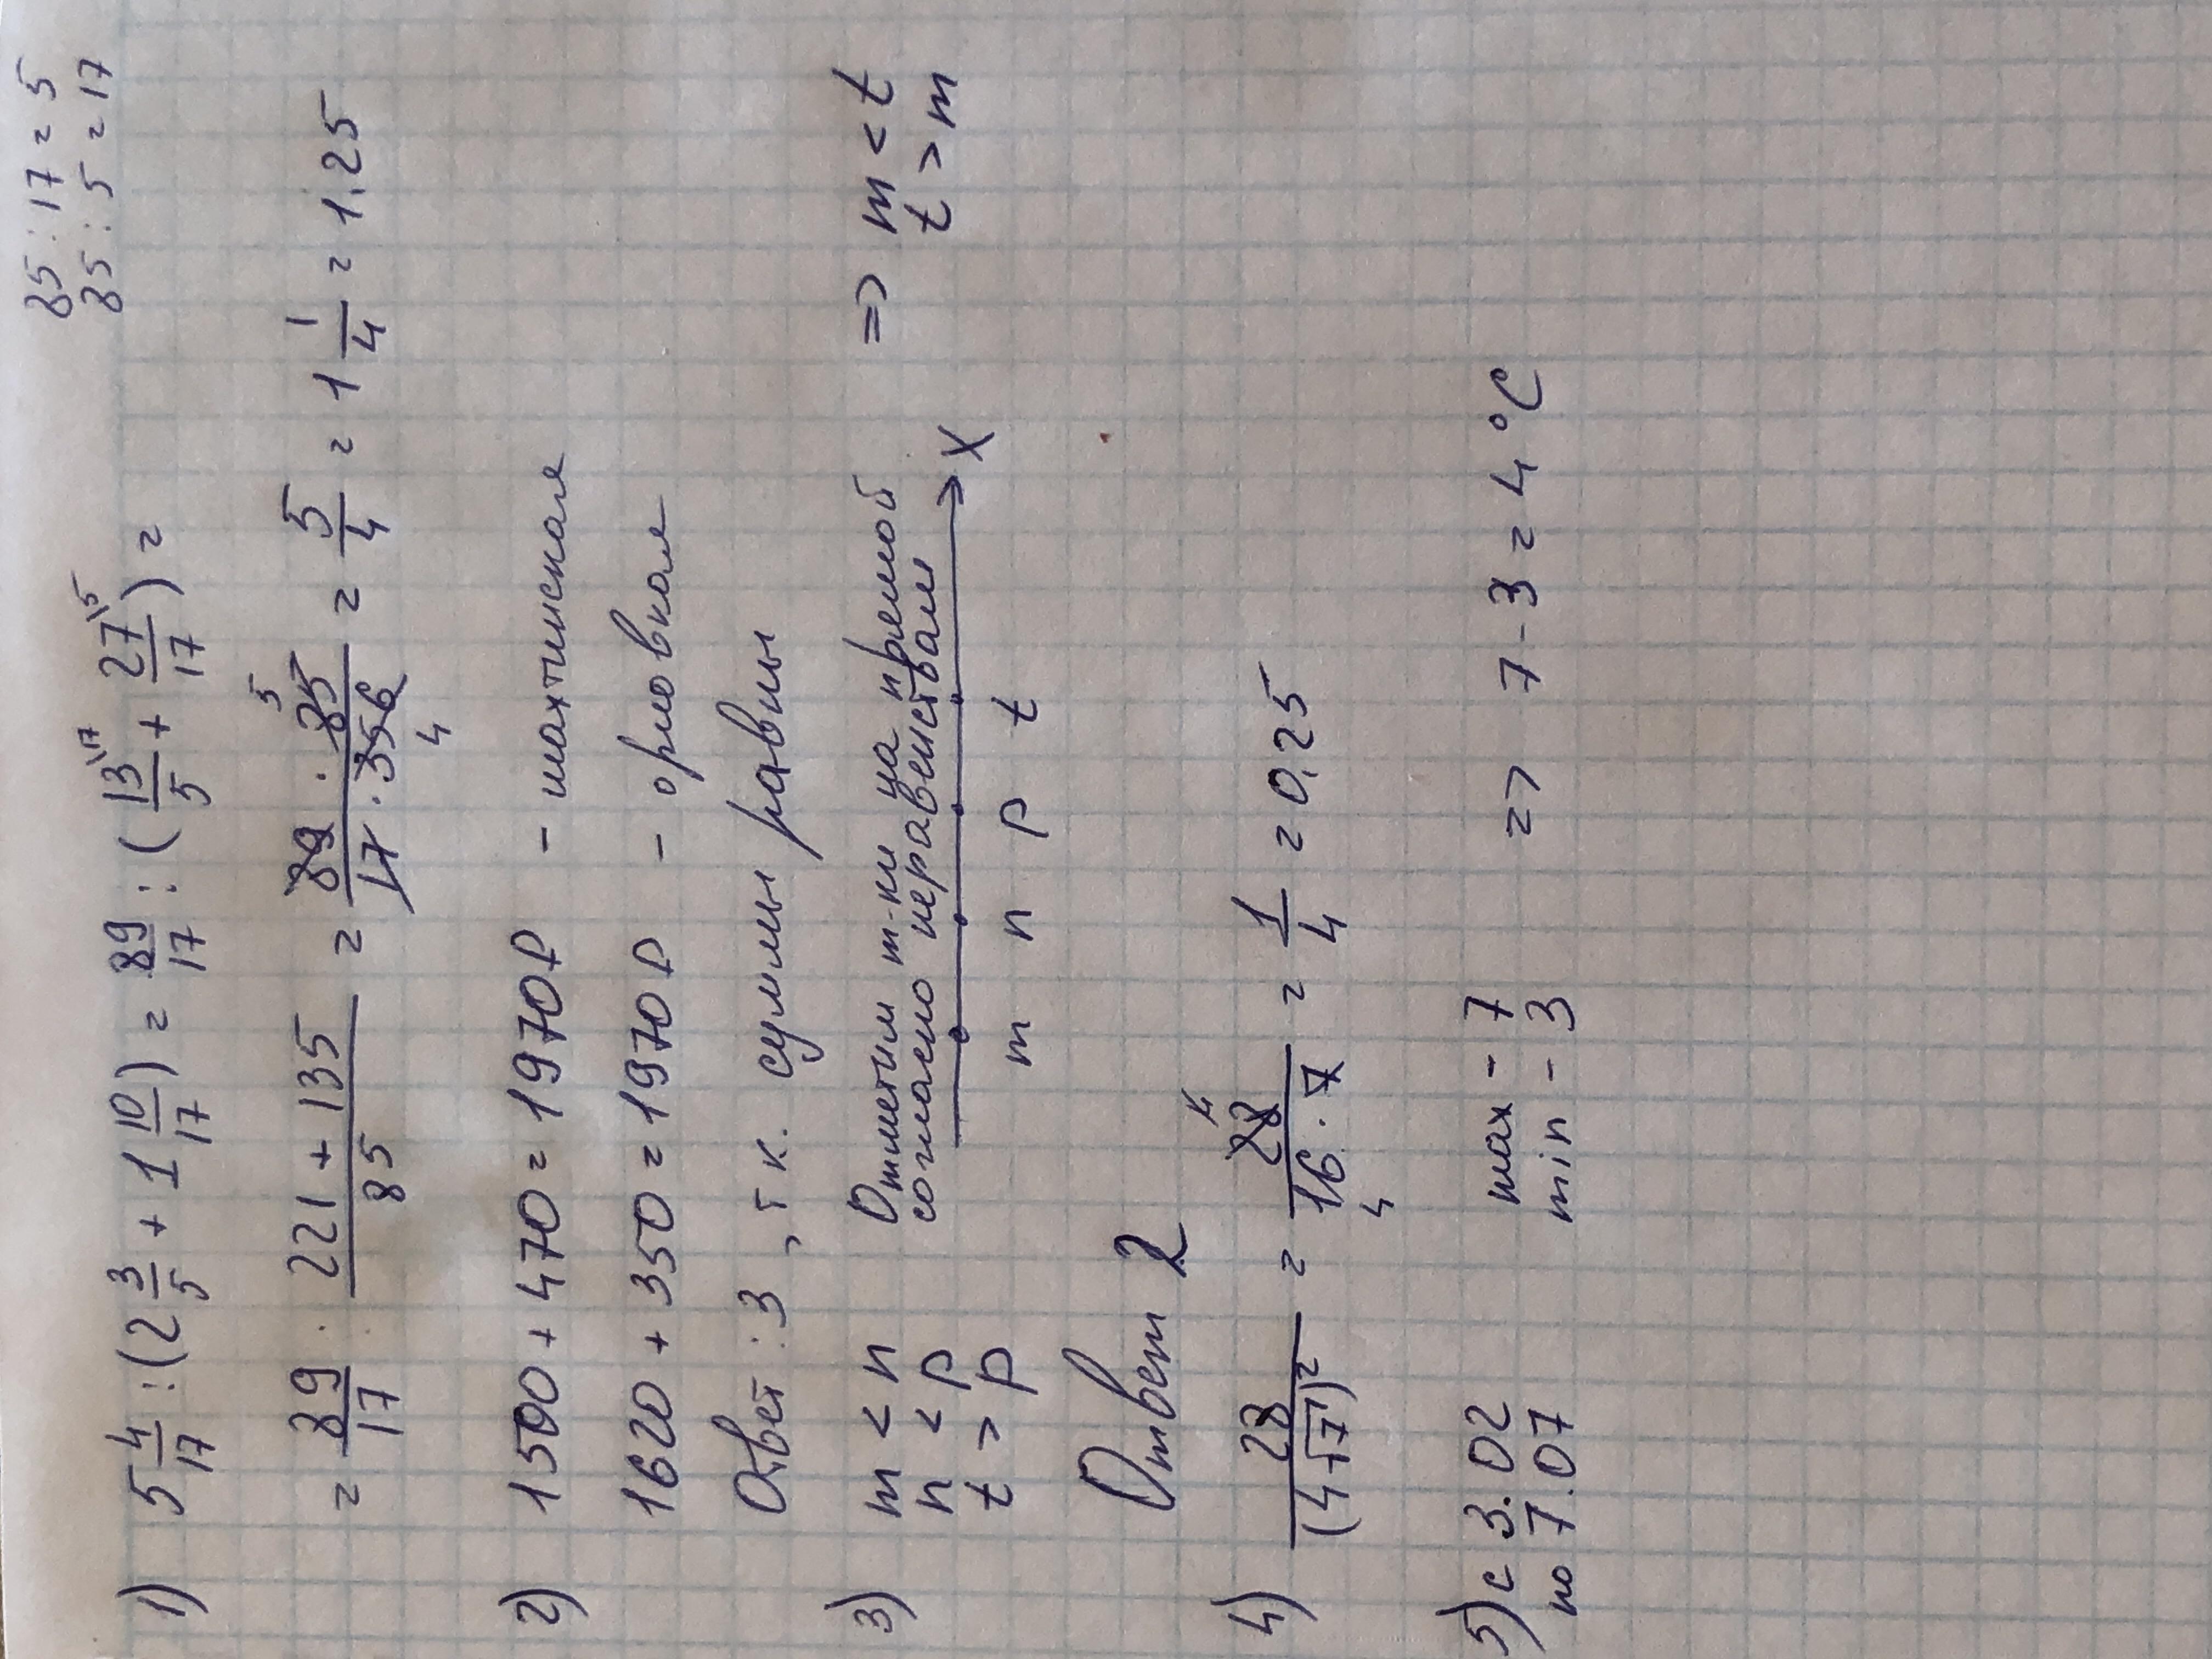 85 : 17 = 5
85 : 5 = 17
1) 5 4/17 : (2 3/5 + 1 10/17) = 89/17 : (13/5 \17 + 27/17 \5) =
= 89/17 · 221 + 135/85 = 89 · 85/17 · 356 5 4 = 5/4 = 1 1/4 = 1.25
2) 1500 + 470 = 1970 Р - шахтинская
1620 + 350 = 1970 Р - орловкая
Ответ : 3 , т к. суммы равны
3) m < n Отметим т-ки на прямой => m < t
n < p согласно неравенствам t > m
t > p m n p t X
Ответ 2
4) 28/(4√7)² = 28/16 · 7 4 4 = 1/4 = 0.25
5) с 3.02 max - 7 => 7 - 3 = 4 °C
по 7.07 min - 3